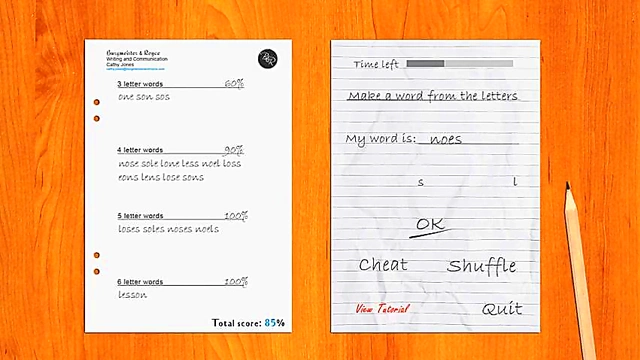 Burgmeister & Royce
Writing and Communication
Cathy Jones
3 letter words 60%
one son sos
4 letter words 90%
nose sole lone less noel loss
eons lens lose sons
5 letter words 100%
loses soles noses noels
6 letter words 100%
lesson
Total score: 85%
Time left
Make a word from the letters
My word is: noes
s l
OK
Cheat Shuffle
View Tutorial Quit